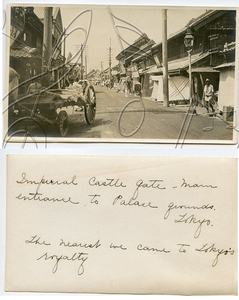 Imperial Castle Gate - main
entrance to Palace grounds.
Tokyo.
The nearest we came to Tokyo's
royalty